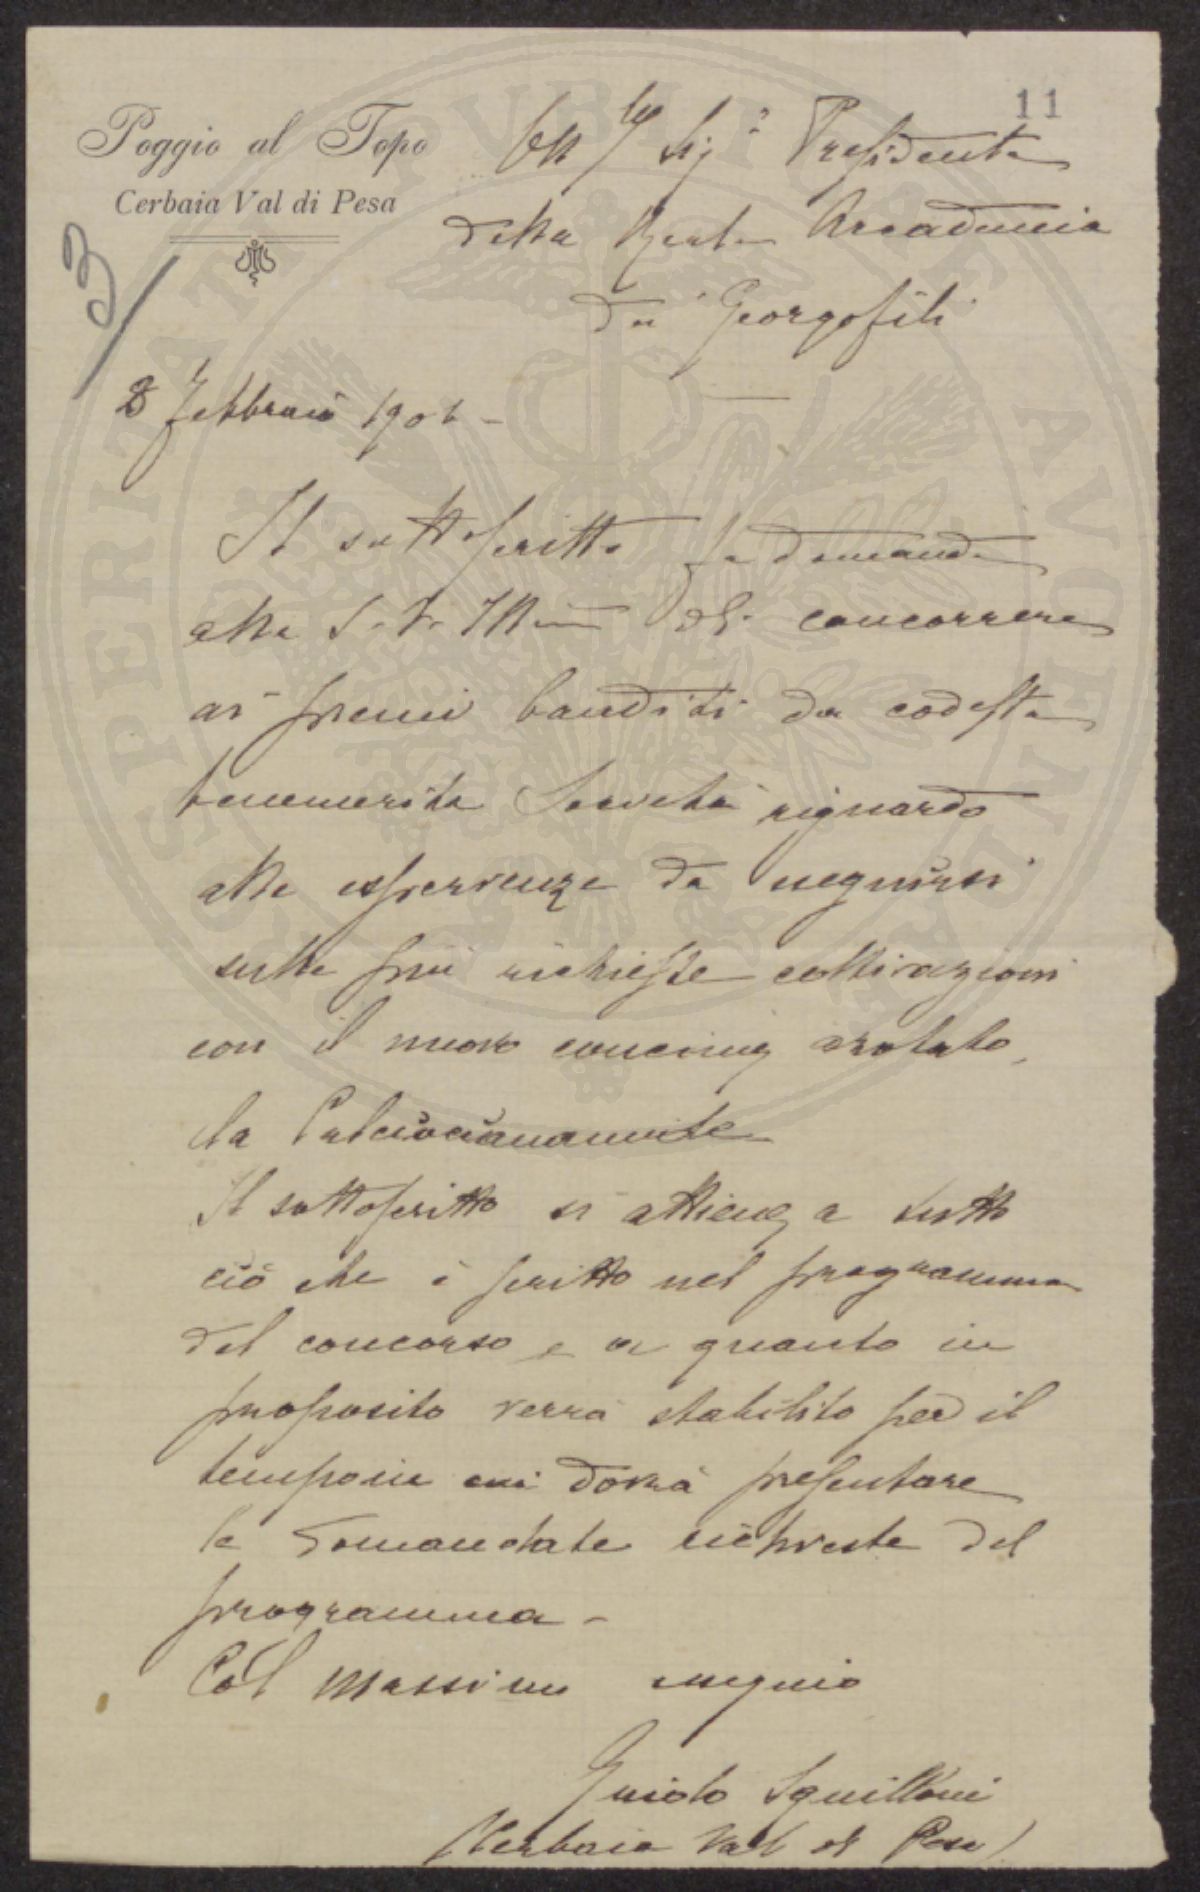 11
Poggio al Topo
Cerbaia Val di Pesa
3
Ill.mo Sig.r Presidente
della Reale Accademia
dei Georgofili
8 Febbraio 1906 -
Il sottoscritto fa domanda
alla S. V. Ill.ma di concorrere
ai premi banditi da codesta
benemerita Società riguardo
alle esperienze da eseguirsi
sulle più richieste coltivazioni
con il nuovo concime azotato,
la Calciocianamide
Il sottoscritto si attiene a tutto
ciò che è scritto nel programma
del concorso e a quanto in
proposito verrà stabilito per il
tempo in cui dovrà presentare
le domandate richieste del
programma -
Col massimo ossequio
Guido Squilloni
(Cerbaia Val di Pesa)
SPERITATI PVBLICAE AVGENDAE